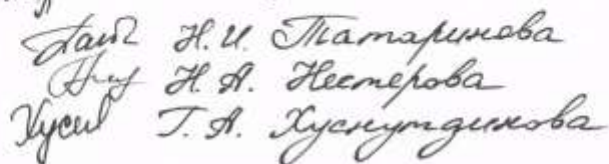 Н.И. Татаринова
Н.А. Нестерова
Хусн Г.А. Хуснутдинова